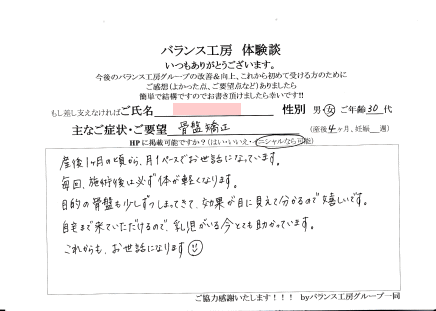 バランス工房 体験談
いつもありがとうございます。
今後のバランス工房グループの改善&向上、これから初めて受ける方のために
ご感想(よかった点、ご要望点など)ありましたら
簡単で結構ですのでお書き頂けましたら幸いです!!
もし差し支えなければご氏名 性別 男・女 ご年齢 30 代
主なご症状・ご要望 骨盤矯正 (産後 4 ヶ月、妊娠 週)
HPに掲載可能ですか?(はい・いいえ・イニシャルなら可能)
産後1ヶ月の頃から、月1ペースでお世話になっています。
毎回、施術後は必ず体が軽くなります。
目的の骨盤も少しずつしまってきて、効果が目に見えて分かるので嬉しいです。
自宅まで来ていただけるので、乳児がいる今とても助かっています。
これからも、お世話になります
ご協力感謝いたします!!! byバランス工房グループ一同